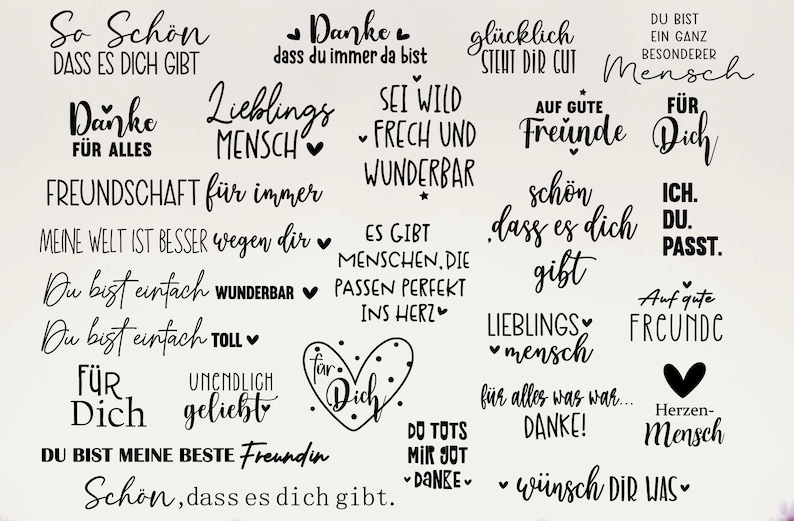 So Schön
DASS ES DICH GIBT
Danke
dass du immer da bist
glücklich
STEHT DIR GUT
DU BIST
EIN GANZ
BESONDERER
Mensch
Danke
FÜR ALLES
Lieblings
MENSCH
SEI WILD
FRECH UND
WUNDERBAR
AUF GUTE
Freunde
FÜR
Dich
FREUNDSCHAFT für immer
schön
,dass es dich
gibt
ICH.
DU.
PASST.
MEINE WELT IST BESSER wegen dir
ES GIBT
MENSCHEN, DIE
PASSEN PERFEKT
INS HERZ
Du bist einfach WUNDERBAR
Du bist einfach TOLL
LIEBLINGS
mensch
Auf gute
FREUNDE
FÜR
Dich
UNENDLICH
geliebt
für
Dich
für alles was war...
DANKE!
Herzen-
Mensch
DU BIST MEINE BESTE Freundin
DU TUTS
MIR GUT
DANKE
Schön, dass es dich gibt.
wünsch DIR WAS